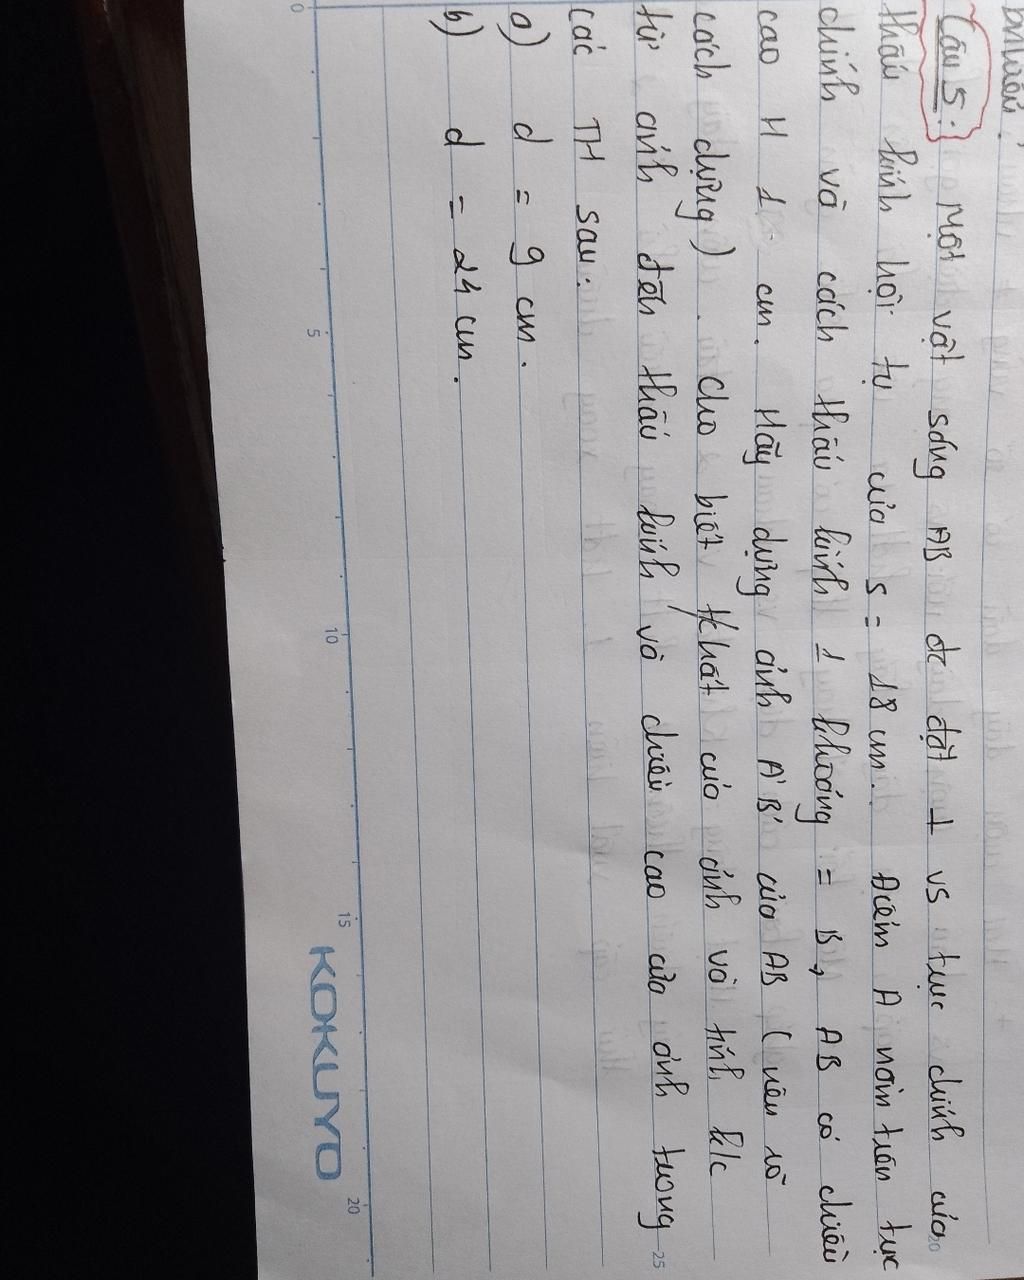 Câu 5: Một vật sáng AB đc đặt ⊥ vs trục chính của
thấu kính hội tụ của s = 18 cm. Điểm A nằm trên trục
chính và cách thấu kính 1 khoảng = B, AB có chiều
cao H 1 cm. Hãy dựng ảnh A'B' của AB (nêu rõ
cách dựng). cho biết t/chất của ảnh và tính k/c
từ ảnh đến thấu kính và chiều cao của ảnh trong
các TH sau:
a) d = 9 cm.
b) d = 24 cm.
0 5 10 15 20
KOKUYO
20
25